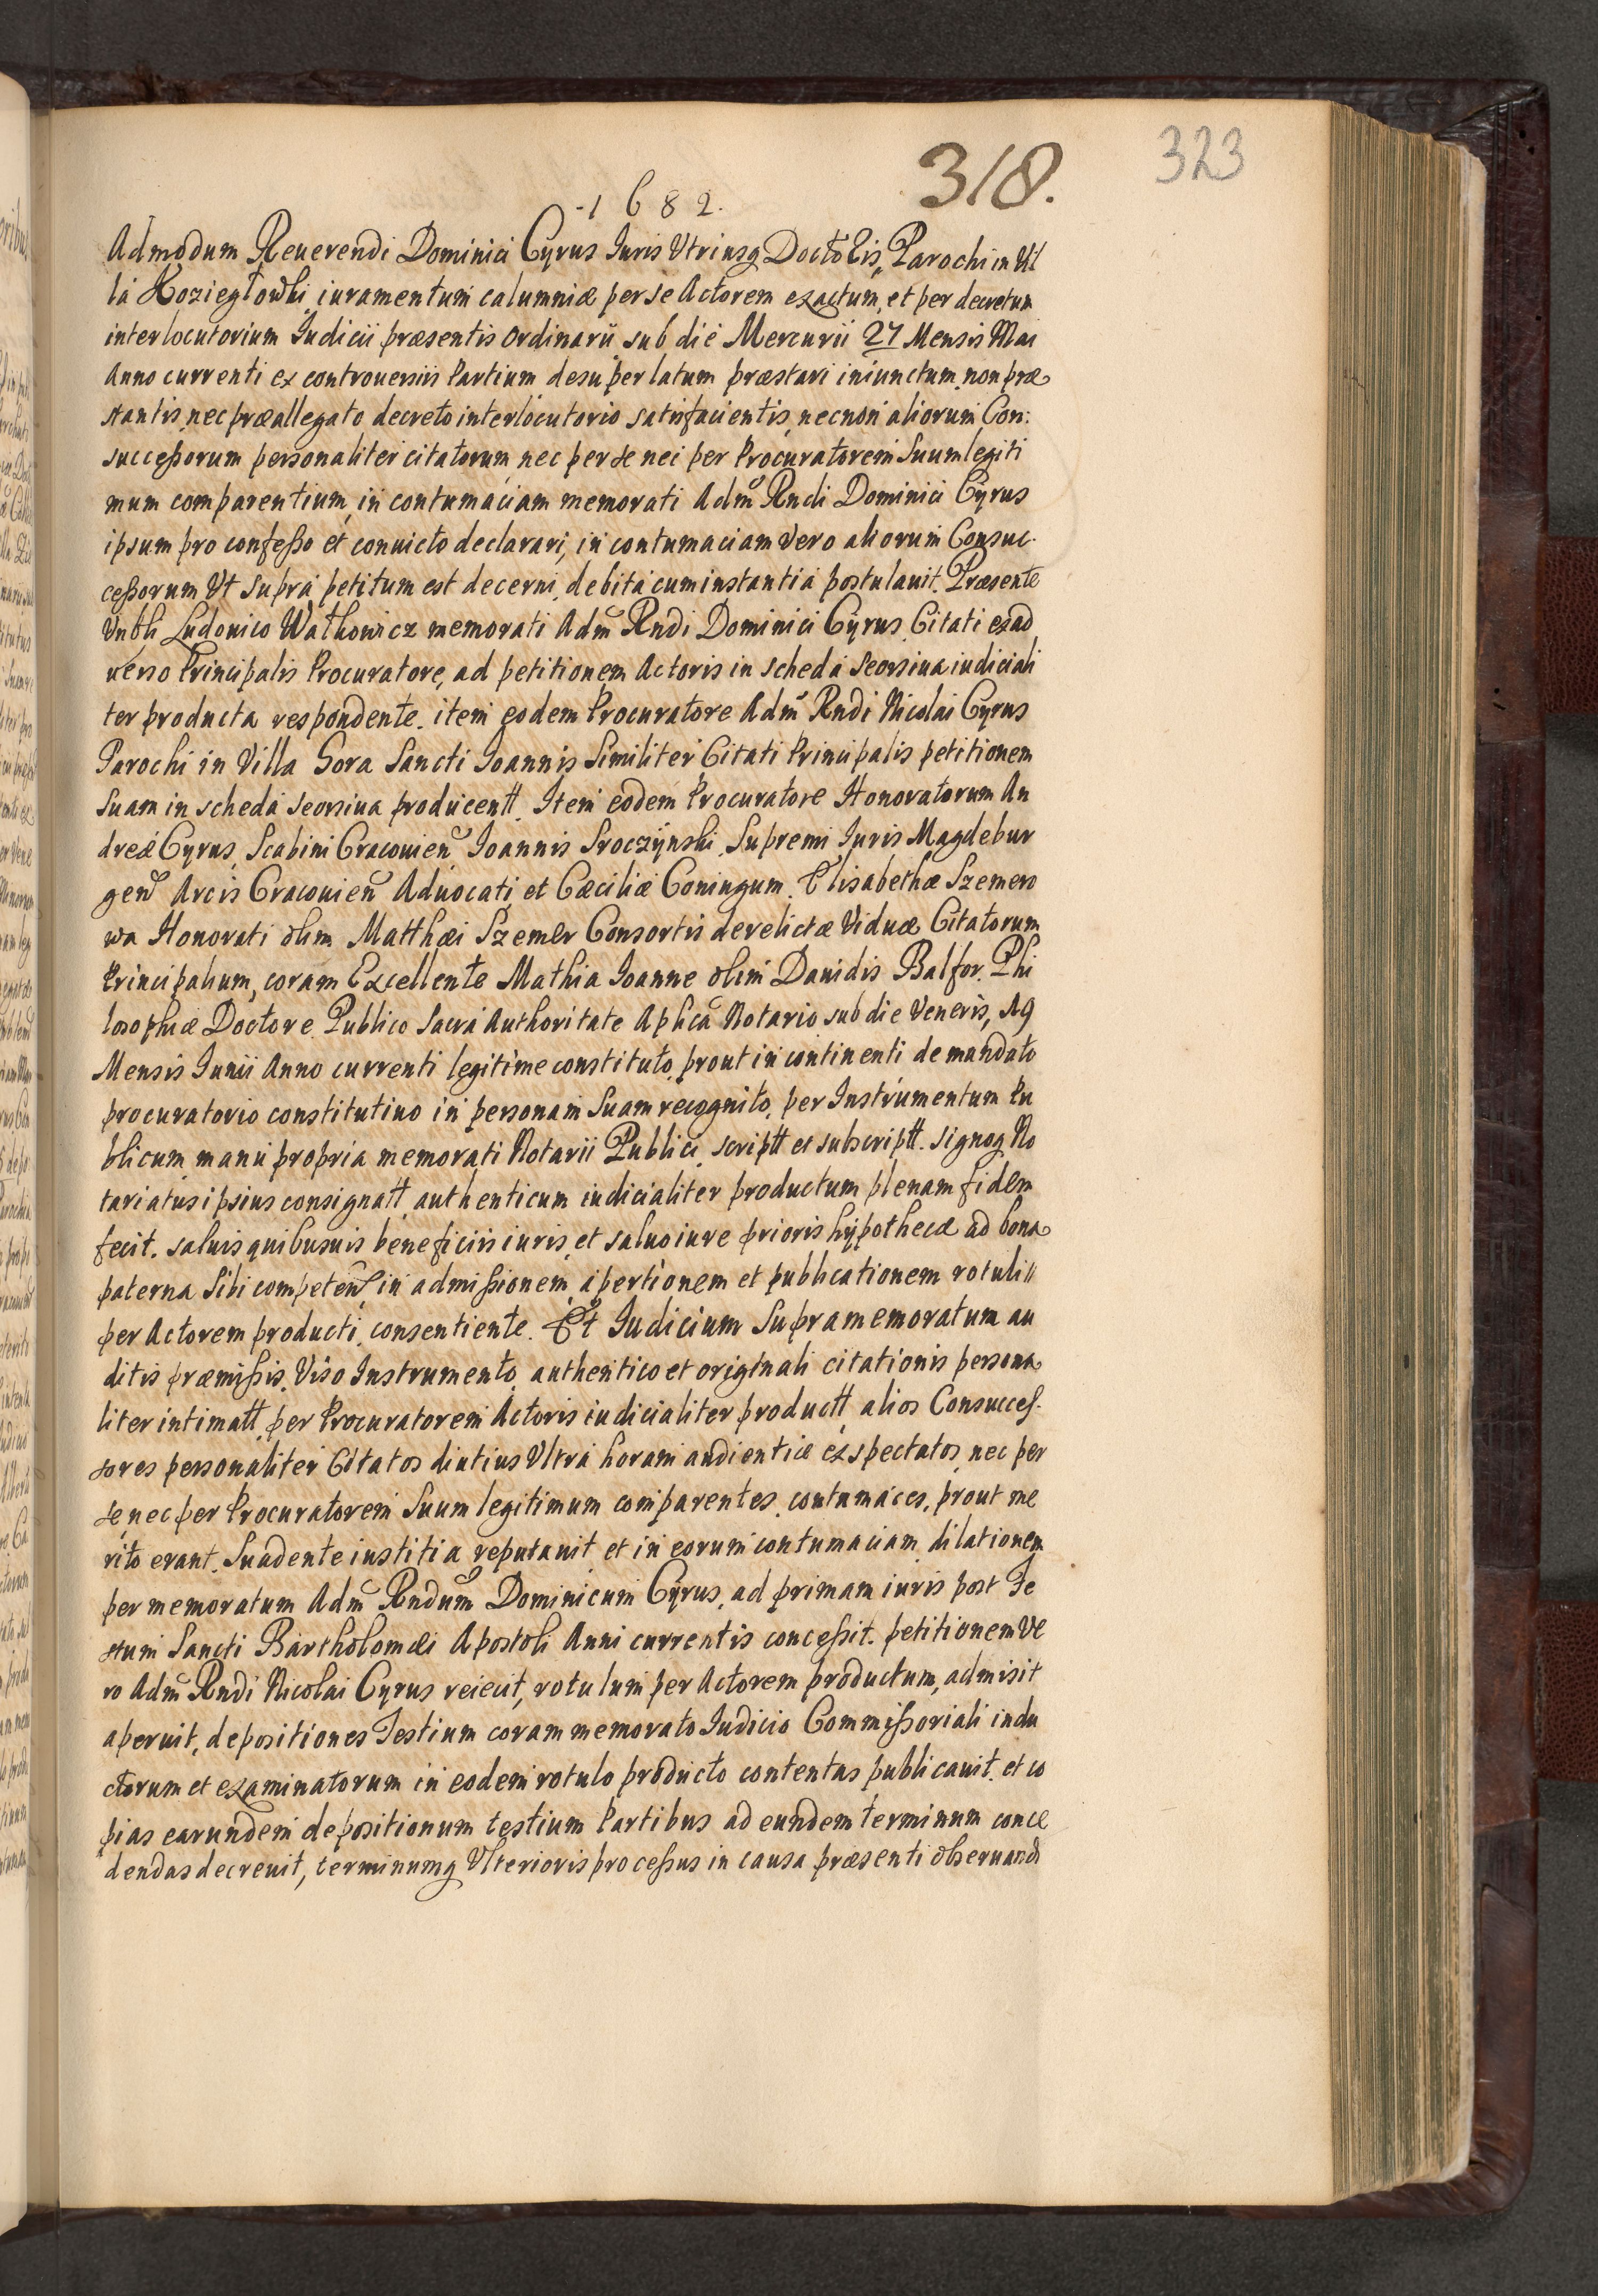 318.
323
1682.
Admodum Reuerendi Dominici Cyrus Iuris Vtriusq Doctoris, Parochi in Vil
la Koziegłowki iuramentum calumniæ per se Actorem exactum, et per decretum
interlocutorium Iudicii præsentis ordinarii sub die Mercurii 27 Mensis Mai
Anno currenti ex controuersiis Partium desuper latum præstari iniunctum, non præ
stantis, nec præallegato decreto interlocutorio satisfacientis, necnon aliorum Con:
successorum personaliter citatorum, nec per se nec per Procuratorem Suum legiti
mum comparentium, in contumaciam memorati Adm Rndi Dominici Cyrus
ipsum pro confesso et conuicto declarari, in contumaciam vero aliorum Consuc-
cessorum Vt supra petitum est decerni, debita cum instantia postulauit. Præsente
Ludouico Wathowicz memorati Adm Rndi Dominici Cyrus Citati ex ad
uerso Principalis Procuratore, ad petitionem Actoris in scheda seorsiua iudiciali
ter producta respondente. item eodem Procuratore Adm Rndi Nicolai Cyrus
Parochi in Villa Gora Sancti Ioannis Similiter Citati Principalis petitionem
suam in scheda seorsiua producentt. Item eodem Procuratore Honoratorum An
dreæ Cyrus, Scabini Cracouien Ioannis Sroczynski, Supremi Iuris Magdebur
gen Arcis Cracouien Aduocati, et Cæciliæ Coniugum. Elisabethæ Szemero
wa Honorati olim Matthæi Szemer Consortis derelictæ Viduæ Citatorum
Principalium, coram Excellente Mathia Ioanne olim Dauidis Balfor Phi
losophiæ Doctore Publico Sacra Authoritate Aplica Notario sub die Veneris, 19
Mensis Iunii Anno currenti legitime constituto, prout in continenti de mandato
procuratorio constitutiuo in personam Suam recognito, per Instrumentum Pu
blicum manu propria memorati Notarii Publici, scriptt et subscriptt. signoq No
tariatus ipsius consignatt, authenticum iudicialiter productum plenam fidem
fecit. saluis quibusuis beneficiis iuris, et saluo iure prioris hypothecæ ad bona
paterna Sibi competen, in admissionem, apertionem et publicationem rotuli
per Actorem producti, consentiente. Et Iudicium Supramemoratum au
ditis præmissis, Viso Instrumento, authentico et originali citationis persona
liter intimatt, per Procuratorem Actoris iudicialiter productt, alios Consucces-
sores personaliter Citatos diutius Vltra horam audientiæ exspectatos, nec per
se, nec per Procuratorem Suum legitimum comparentes, contumaces, prout me
rito erant, Suadente iustitia reputauit et in eorum contumaciam dilationem
per memoratum Adm Rndum Dominicum Cyrus, ad primam iuris post Fe
stum Sancti Bartholomæi Apostoli Anni currentis concessit. petitionem Ve
ro Adm Rndi Nicolai Cyrus reiecit, rotulum per Actorem productum, admisit
aperuit, depositiones Testium coram memorato Iudicio Commissoriali indu
ctorum et examinatorum in eodem rotulo producto contentas publicauit, et co
pias earundem depositionum testium Partibus ad eundem terminum conce
dendas decreuit, terminumq Vlterioris processus in causa præsenti obseruandi